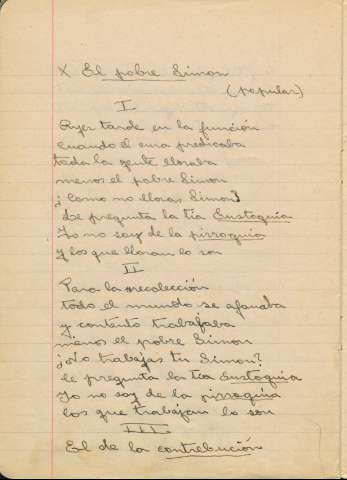 X El pobre Simon
(popular)
I.
Ayer tarde en la función
cuando el cura predicaba
toda la gente lloraba
menos el pobre Simon
¿Como no lloras Simon?
Le pregunta la tía Eustoquia
Yo no soy de la pirroquia
y los que lloran lo son
II
Para la recolección
todo el mundo se afanaba
y contento trabajaba
menos el pobre Simon
¿No trabajas tu Simon?
le pregunta la tía Eustoquia
Yo no soy de la pirroquia
los que trabajan lo son
III.
El de la contrebución